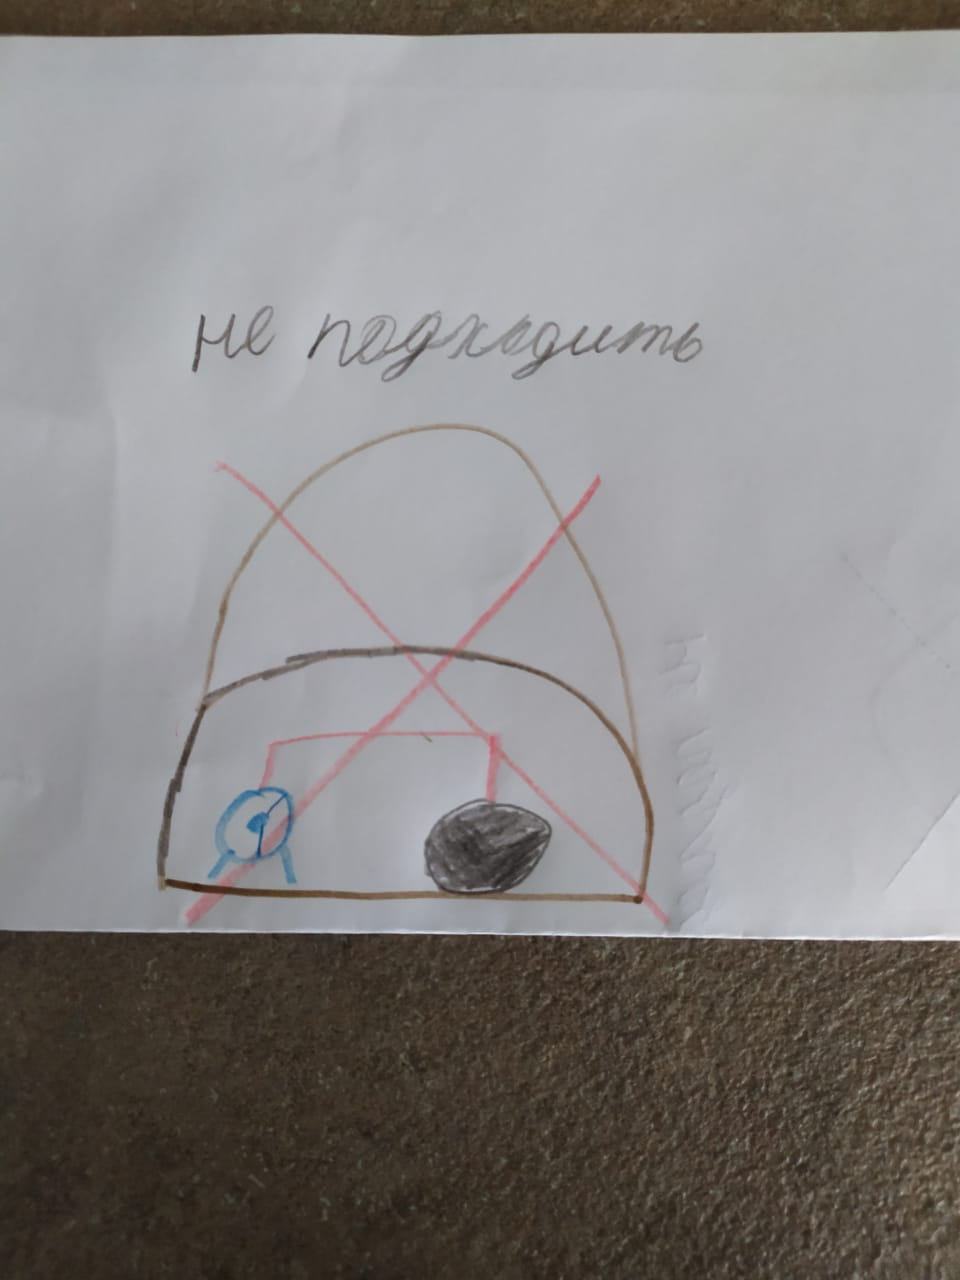 не подходить